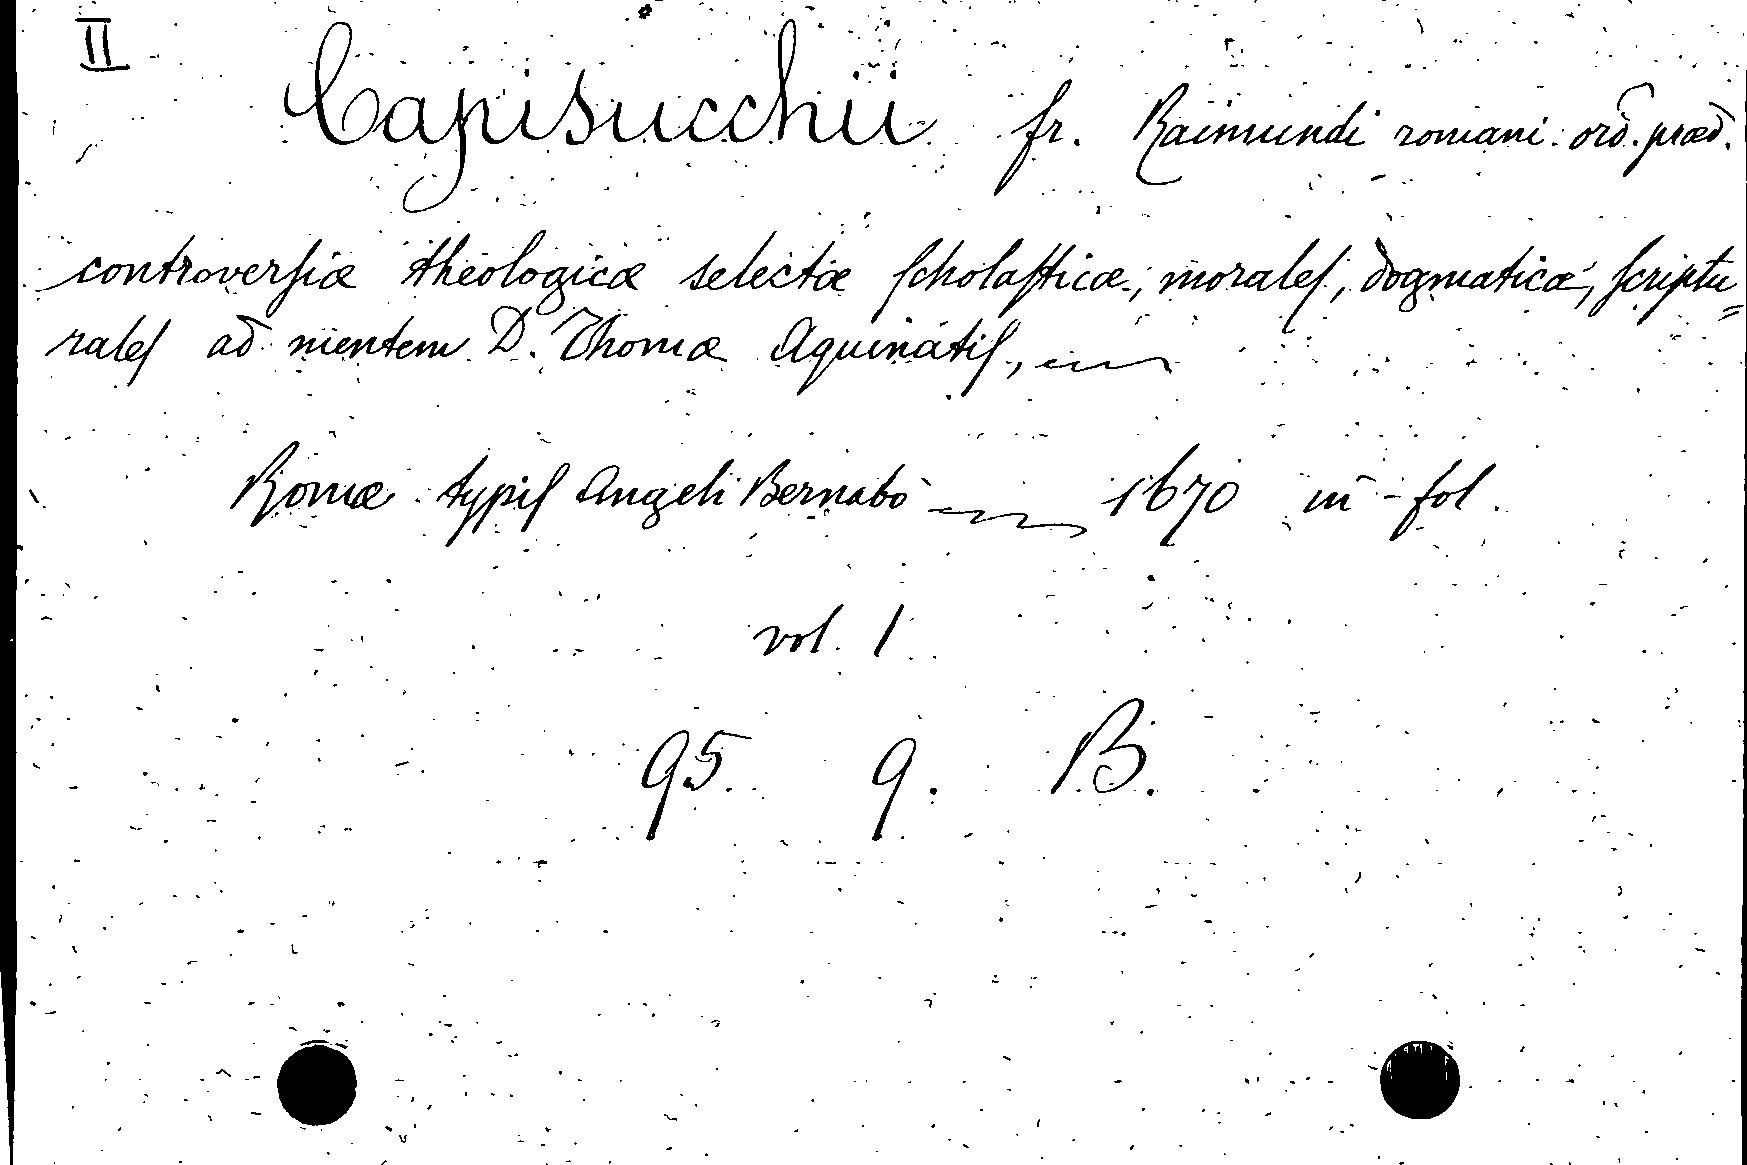 II
Capisucchii fr. Raimundi romani ord. præd.
controversiæ theologicæ selectæ scholasticæ, morales, dogmaticæ, scriptu=
rales ad mentem D. Thomæ Aquinatis,
Romæ typis Angeli Bernabò 1670 in-fol.
vol. 1.
95. 9. B.